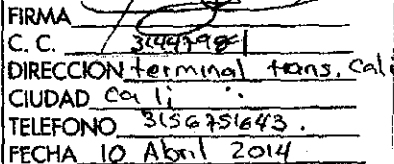 FIRMA
C. C. 31447981
DIRECCION terminal trans. Cali
CIUDAD Cali
TELEFONO 3156751643.
FECHA 10 Abril 2014